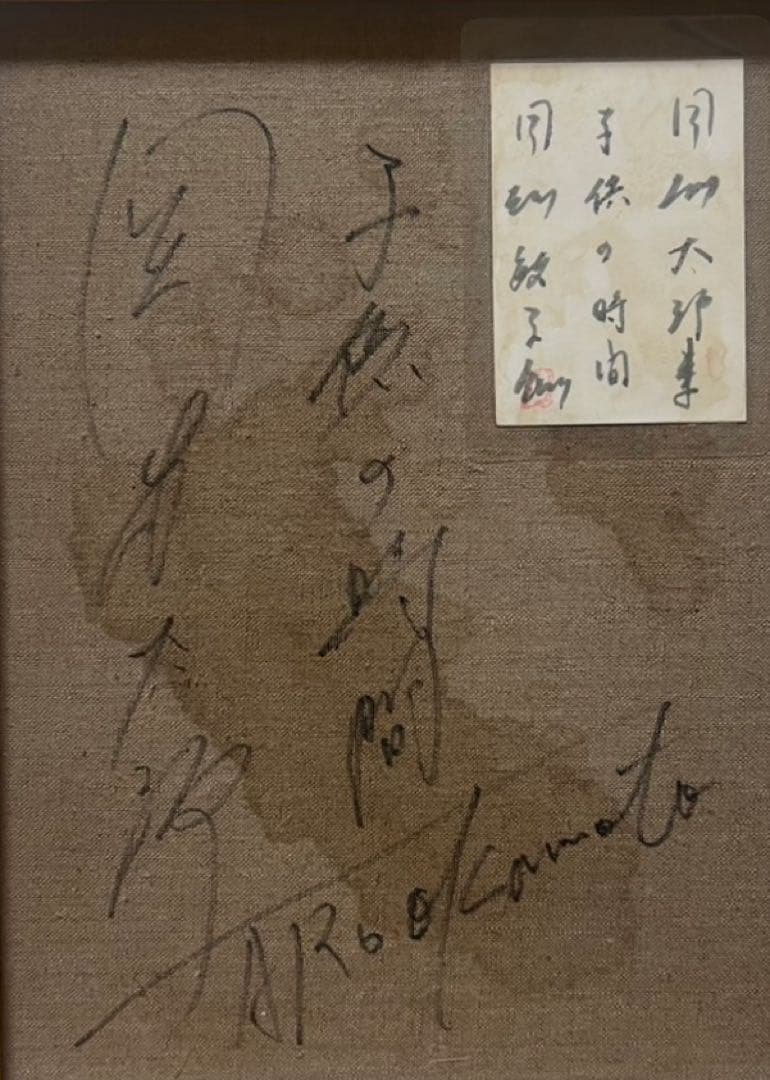 岡本太郎筆
子供の時間
岡本敏子
子供の時間
岡本太郎
TARO OKamoto